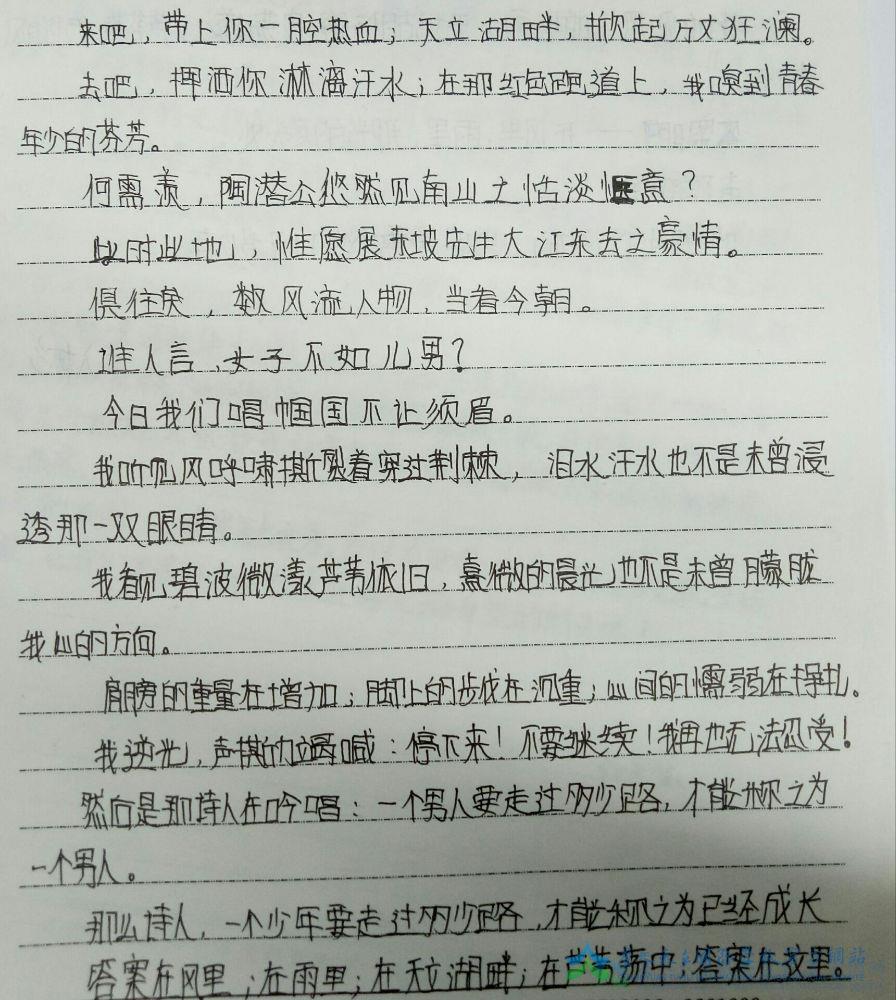 来吧，带上你一腔热血；天立湖畔，掀起万丈狂澜。
去吧，挥洒你淋漓汗水；在那红色跑道上，我嗅到青春
年少的芬芳。
何需羡，陶潜公悠然见南山之恬淡惬意？
此时此地，惟愿展东坡先生大江东去之豪情。
俱往矣，数风流人物，当看今朝。
谁人言，女子不如儿男？
今日我们唱帼国不让须眉。
我听见风呼啸撕裂着穿过荆棘，泪水汗水也不是未曾浸
透那一双眼睛。
我看见碧波微漾芦苇依旧，熹微的晨光也不是未曾朦胧
我心的方向。
肩膀的重量在增加；脚上的步伐在沉重；心间的懦弱在挣扎。
我逆光，声撕力竭喊：停下来！不要继续！我再也无法忍受！
然而是那诗人在吟唱：一个男人要走过多少路，才能称之为
一个男人。
那么诗人，一个少年要走过多少路，才能称之为已经成长
答案在风里；在雨里；在天立湖畔；在芦苇荡中，答案在这里。